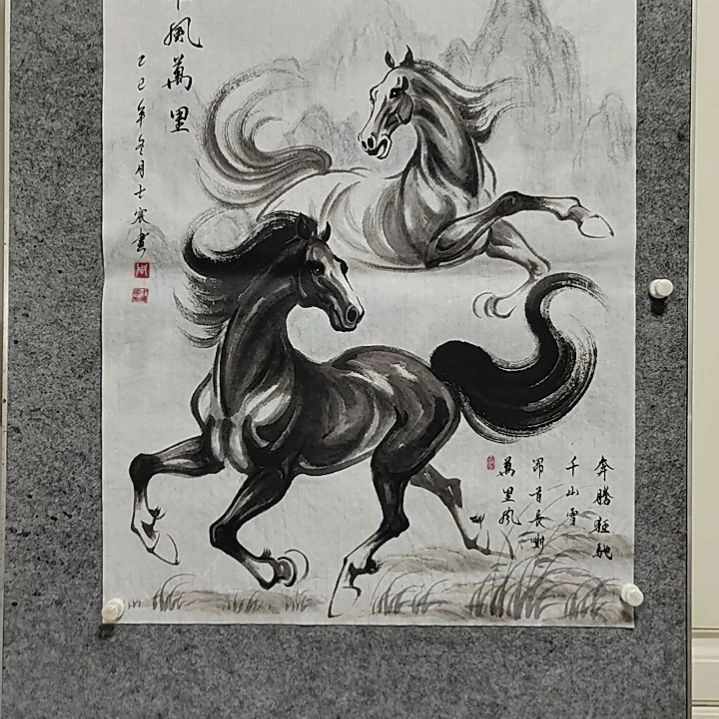 風萬里
乙巳年冬月士書
奔騰輕馳
千山雪
昂首長嘶
萬里風